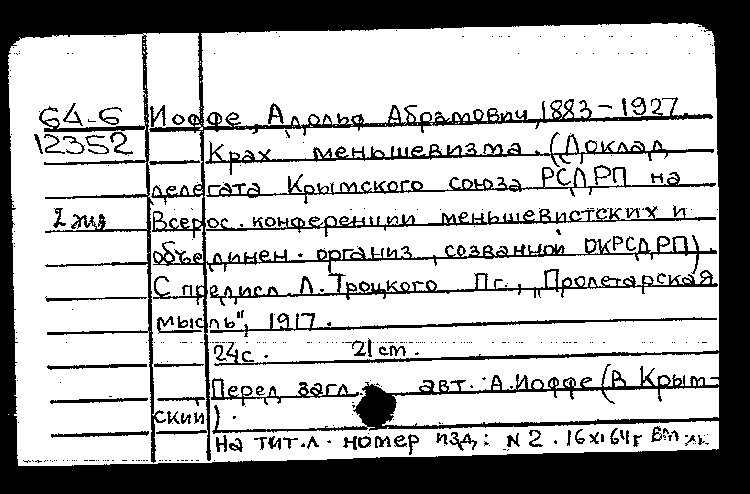 64-6 Иоффе, Адольф Абрамович, 1883-1927.
12352 Крах меньшевизма. (Доклад
делегата Крымского союза РСДРП на
2 экз Всерос. конференции меньшевистских и
объединен. организ, созванной ОКРСДРП).
С предисл Л. Троцкого Пг., „Пролетарская
мысль", 1917.
24с. 21cm.
Перед загл. авт.: А. Иоффе (В Крым-
ский).
На тит.л. номер изд,: N 2. 16 XI 64г